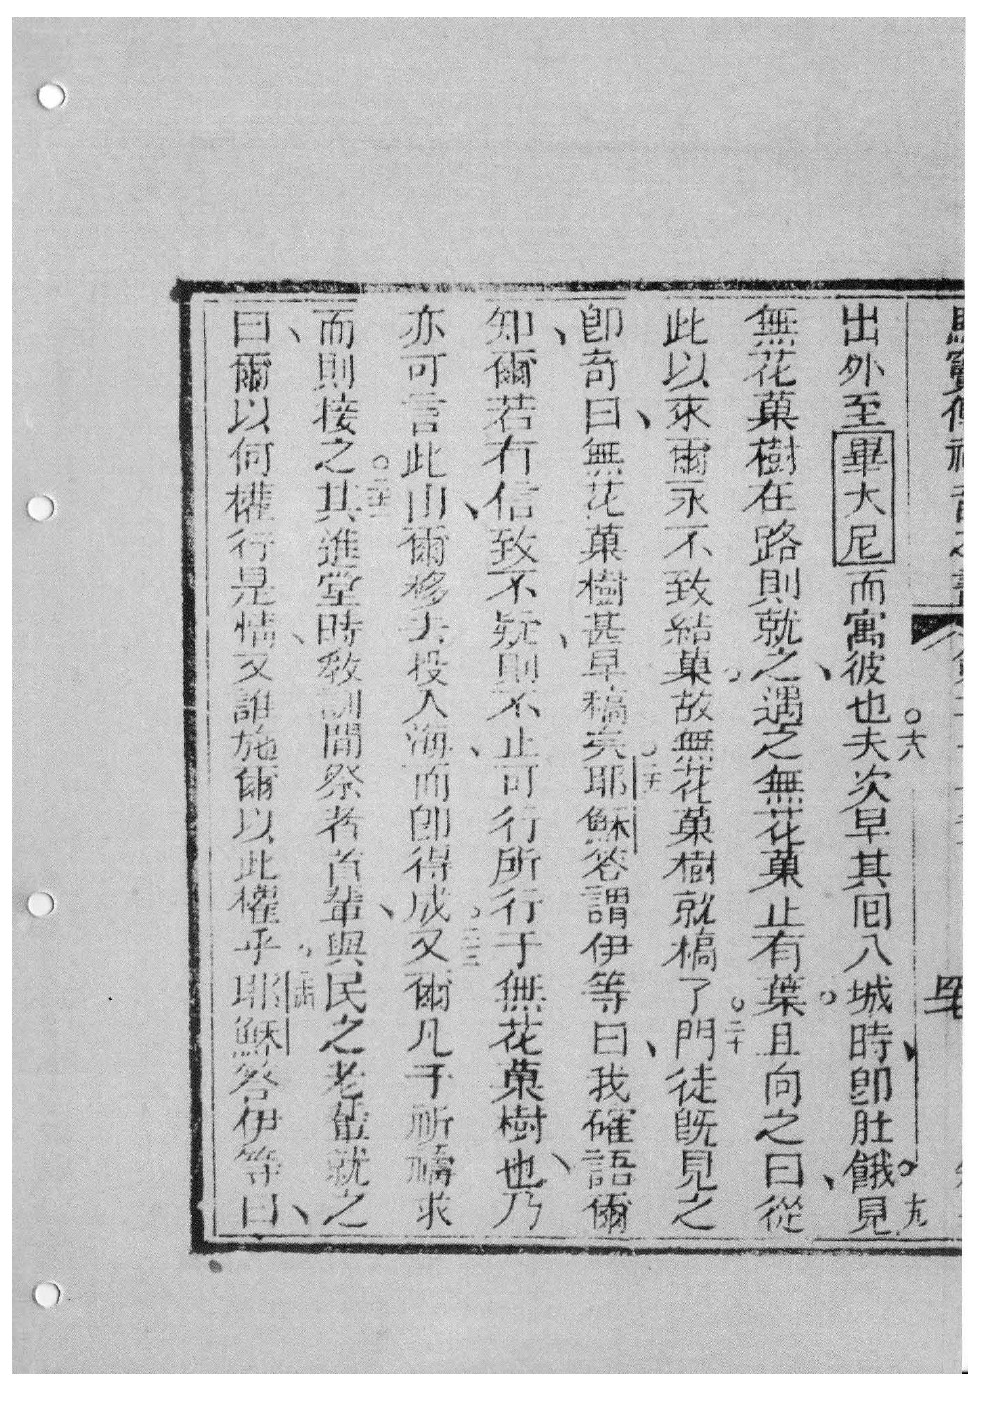 出外至畢大尼而寓彼也。十八夫次早其囘入城時、卽肚餓。十九見
無花菓樹在路則就之、遇之無花菓止有葉。且向之曰、從
此以來爾永不致結菓。故無花菓樹就槁了。二十門徒旣見之
卽奇曰、無花菓樹甚早槁矣。二十一耶穌答謂伊等曰、我確語爾
知、爾若冇信致不疑、則不止可行所行于無花菓樹也、乃
亦可言此山、爾移去投入海、而卽得成。二十二又爾凡于祈禱求
而則接之。二十三其進堂時敎訓間祭者首輩、與民之老輩就之
曰、爾以何權行是情、又誰施爾以此權乎。二十四耶穌答伊等曰、